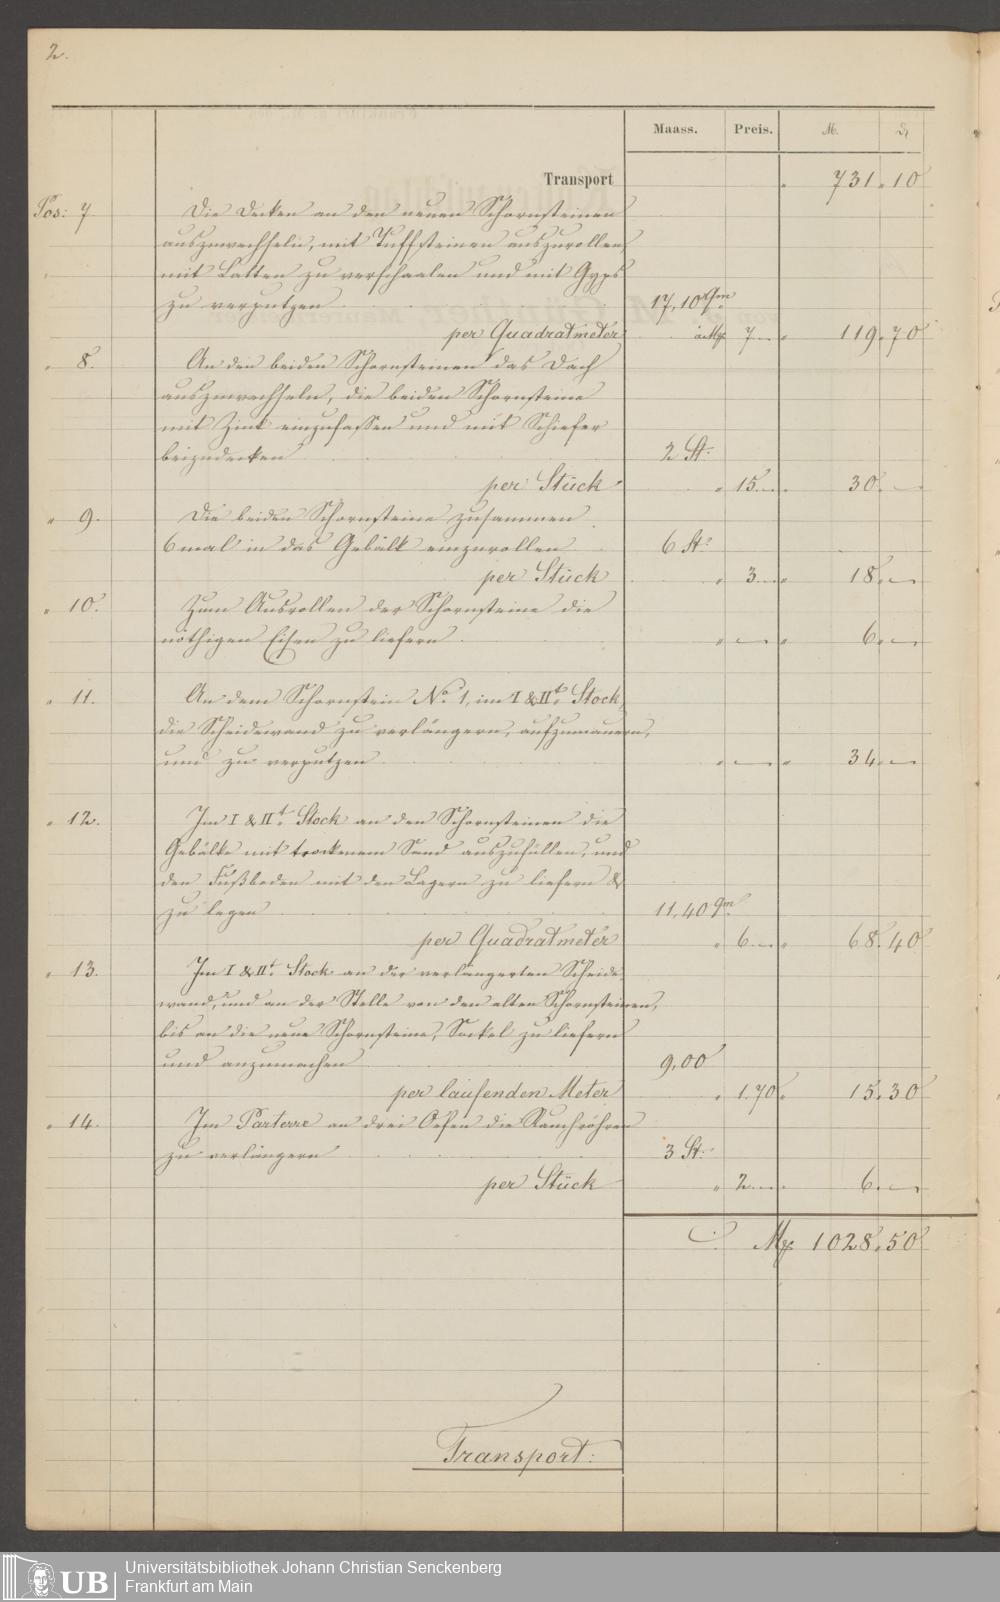 2.
Maass. Preis. M. ₰
Transport 731. 10
Pos: 7 Die Decken an den neuen Schornsteinen
auszuwechseln, mit Tuffsteinen auszurollen,
mit Latten zu verschaalen und mit Gyps
zu verputzen 17,10 qm
per Quadratmeter à M 7.— " 119. 70
" 8. An den beiden Schornsteinen das Dach
auszuwechseln, die beiden Schornsteine
mit Zink einzufassen und mit Schiefer
beizudecken 2 St.
per Stück " 15.— " 30. —
" 9. Die beiden Schornsteine zusammen
6 mal in das Gebälk einzurollen 6 St.
per Stück " 3.— " 18. —
" 10. Zum Ausrollen der Schornsteine die
nöthigen Eisen zu liefern " — " 6. —
" 11. An dem Schornstein No. 1, im I & IIt. Stock,
die Scheidewand zu verlängern, aufzumauern,
und zu verputzen " — " 34. —
" 12. Im I & IIt. Stock an den Schornsteinen die
Gebälke mit trockenem Sand auszufüllen, und
den Fußboden mit den Lagern zu liefern &
zu legen 11,40 qm
per Quadratmeter " 6.— " 68. 40
" 13. Im I & IIt. Stock an der verlängerten Scheide-
wand, und an der Stelle von den alten Schornsteinen,
bis an die neue Schornsteine, Sockel zu liefern
und anzumachen 9,00
per laufenden Meter " 1.70 " 15. 30
" 14. Im Parterre an drei Oefen die Rauchröhren
zu verlängern 3 St.
per Stück " 2.— " 6. —
M 1028. 50
Transport:
UB
Universitätsbibliothek Johann Christian Senckenberg
Frankfurt am Main